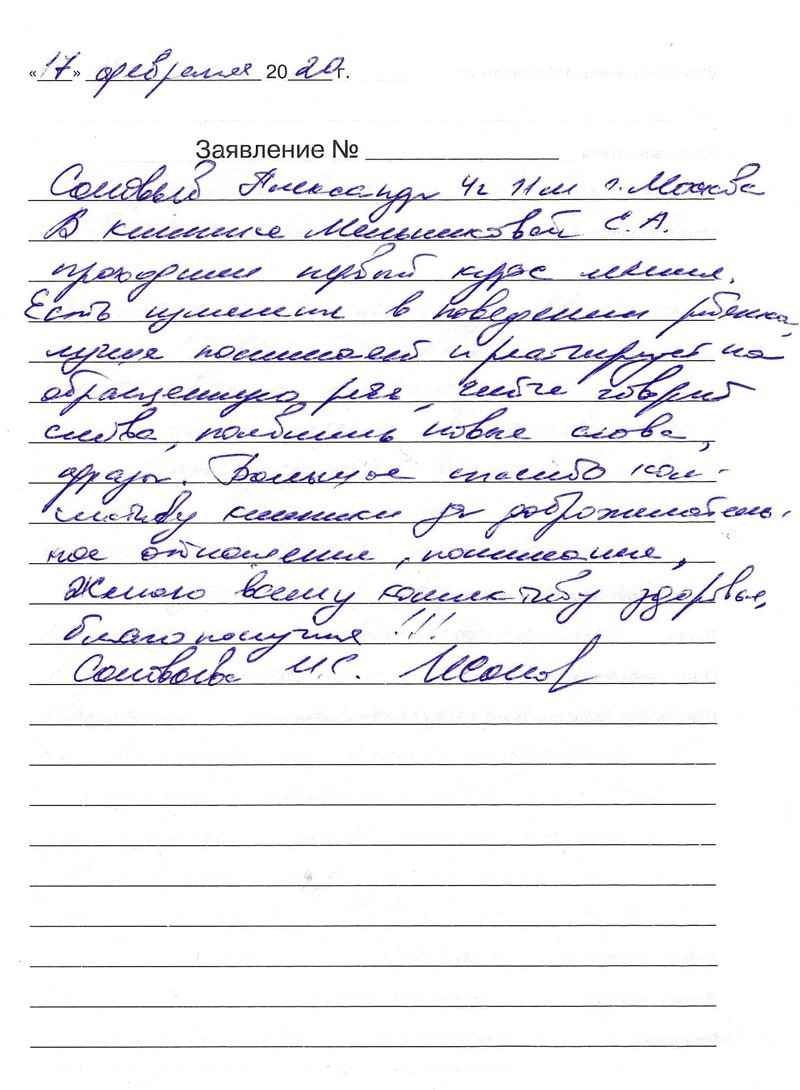 «17» февраля 2020 г.
Заявление №
Соловьёв Александр 4г 11м г. Москва
В клинике Мельниковой Е.А.
проходили первый курс лечения.
Есть изменения в поведении ребёнка,
лучше понимает и реагирует на
обращенную речь, чётче говорит
слова, появились новые слова,
фразы. Большое спасибо кол-
лективу клиники за доброжелатель-
ное отношение, понимание,
Желаю всему коллективу здоровья,
благополучия!!!
Соловьева И.С.